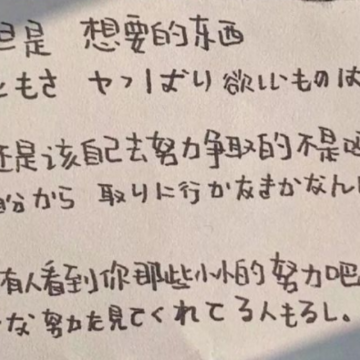 但是 想要的东西
ともさ ヤっぱり欲しいものは
还是该自己去努力争取的不是吗
自分から 取りに行かなきゃなん
有人看到你那些小小的努力吧
な努力を見てくれてる人もるし。